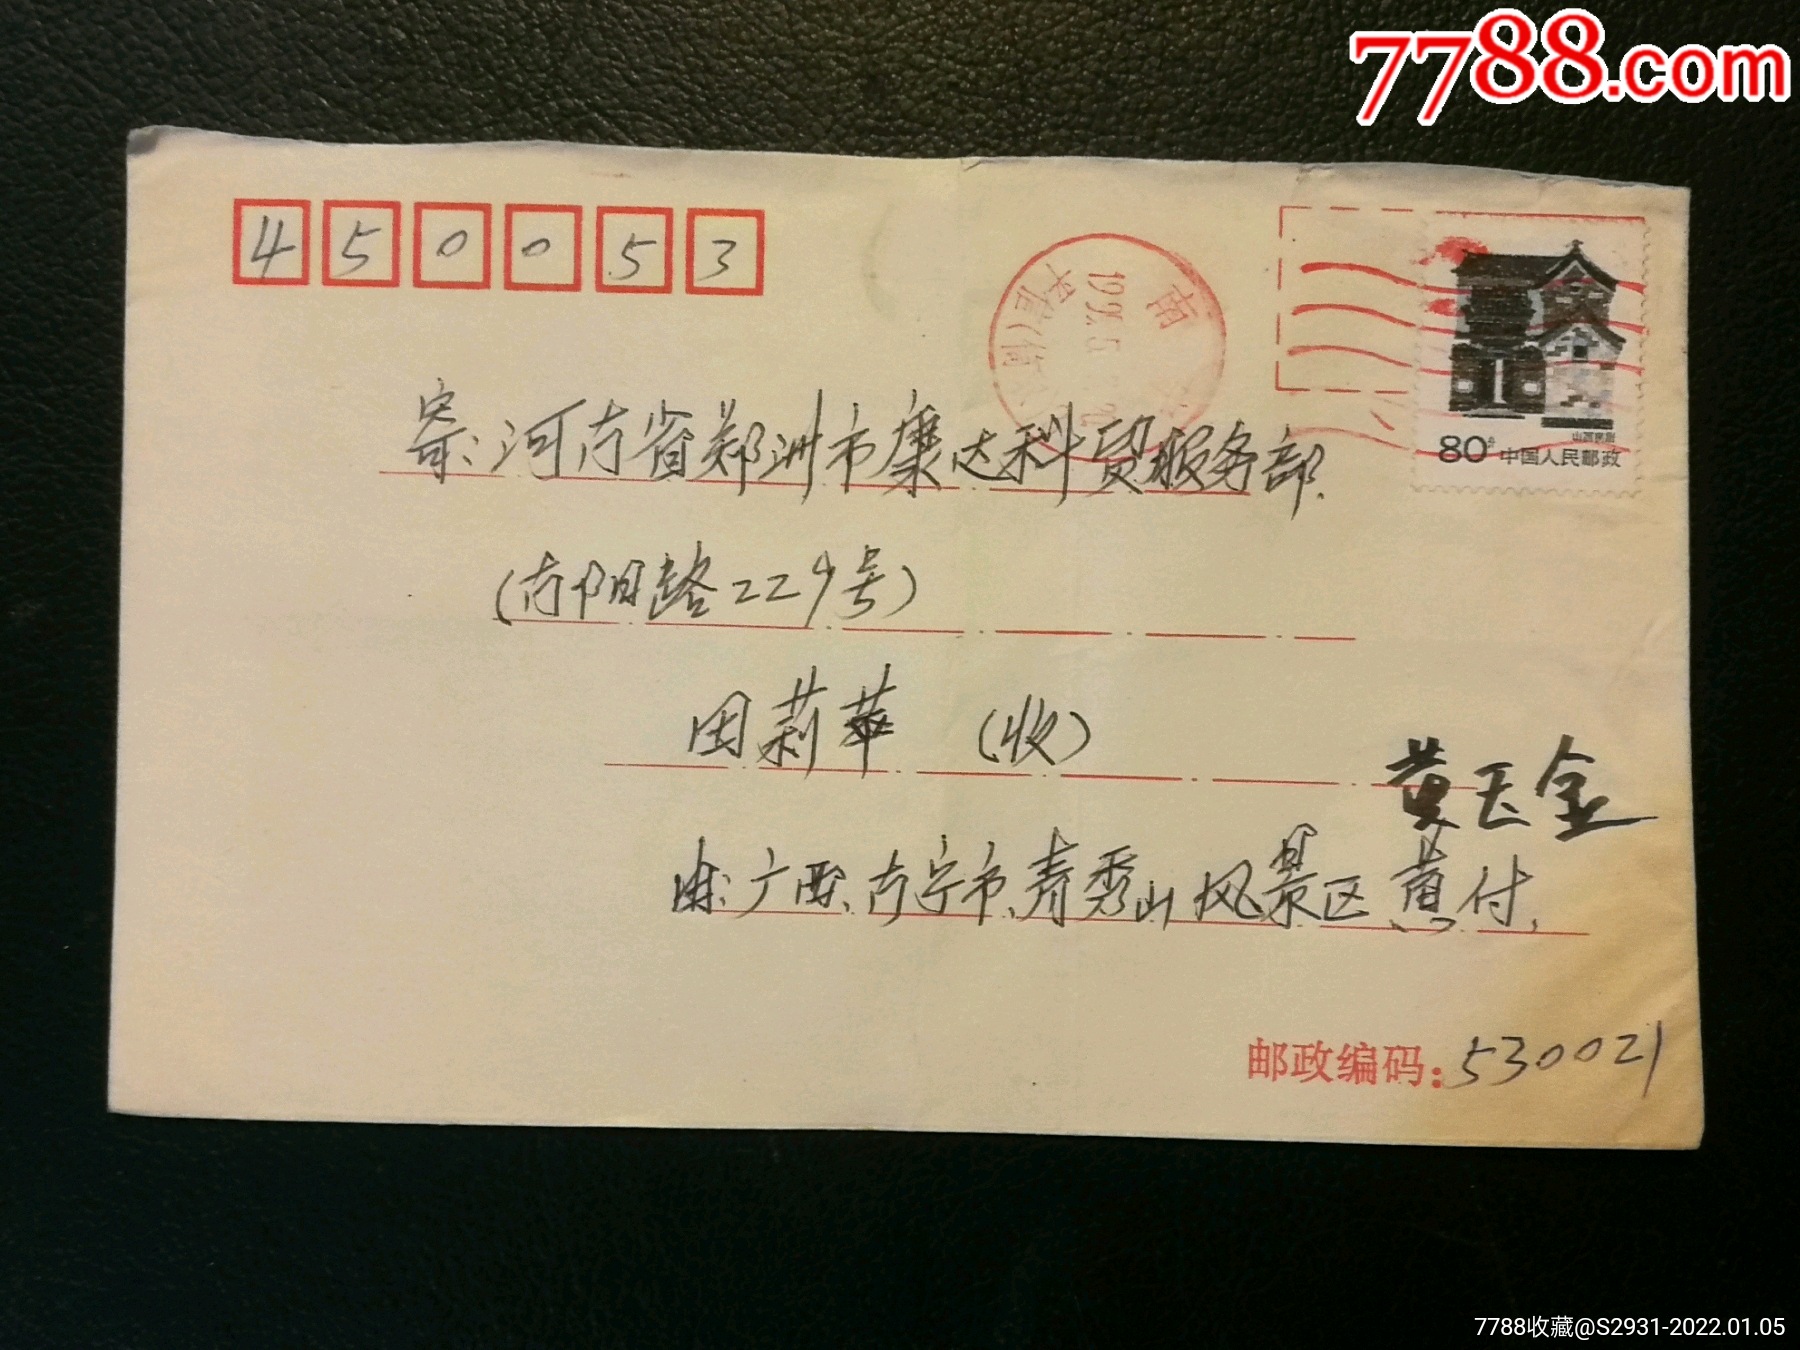 7788.com
450053
南
1999.5
平信(筒
80分 中国人民邮政
山西民居
寄:河南省郑洲市康达科贸服务部.
(南阳路229号)
田莉苹 (收)
黄玉金
由:广西、南宁市、青秀山风景区黄付.
邮政编码:530021
7788收藏@S2931-2022.01.05